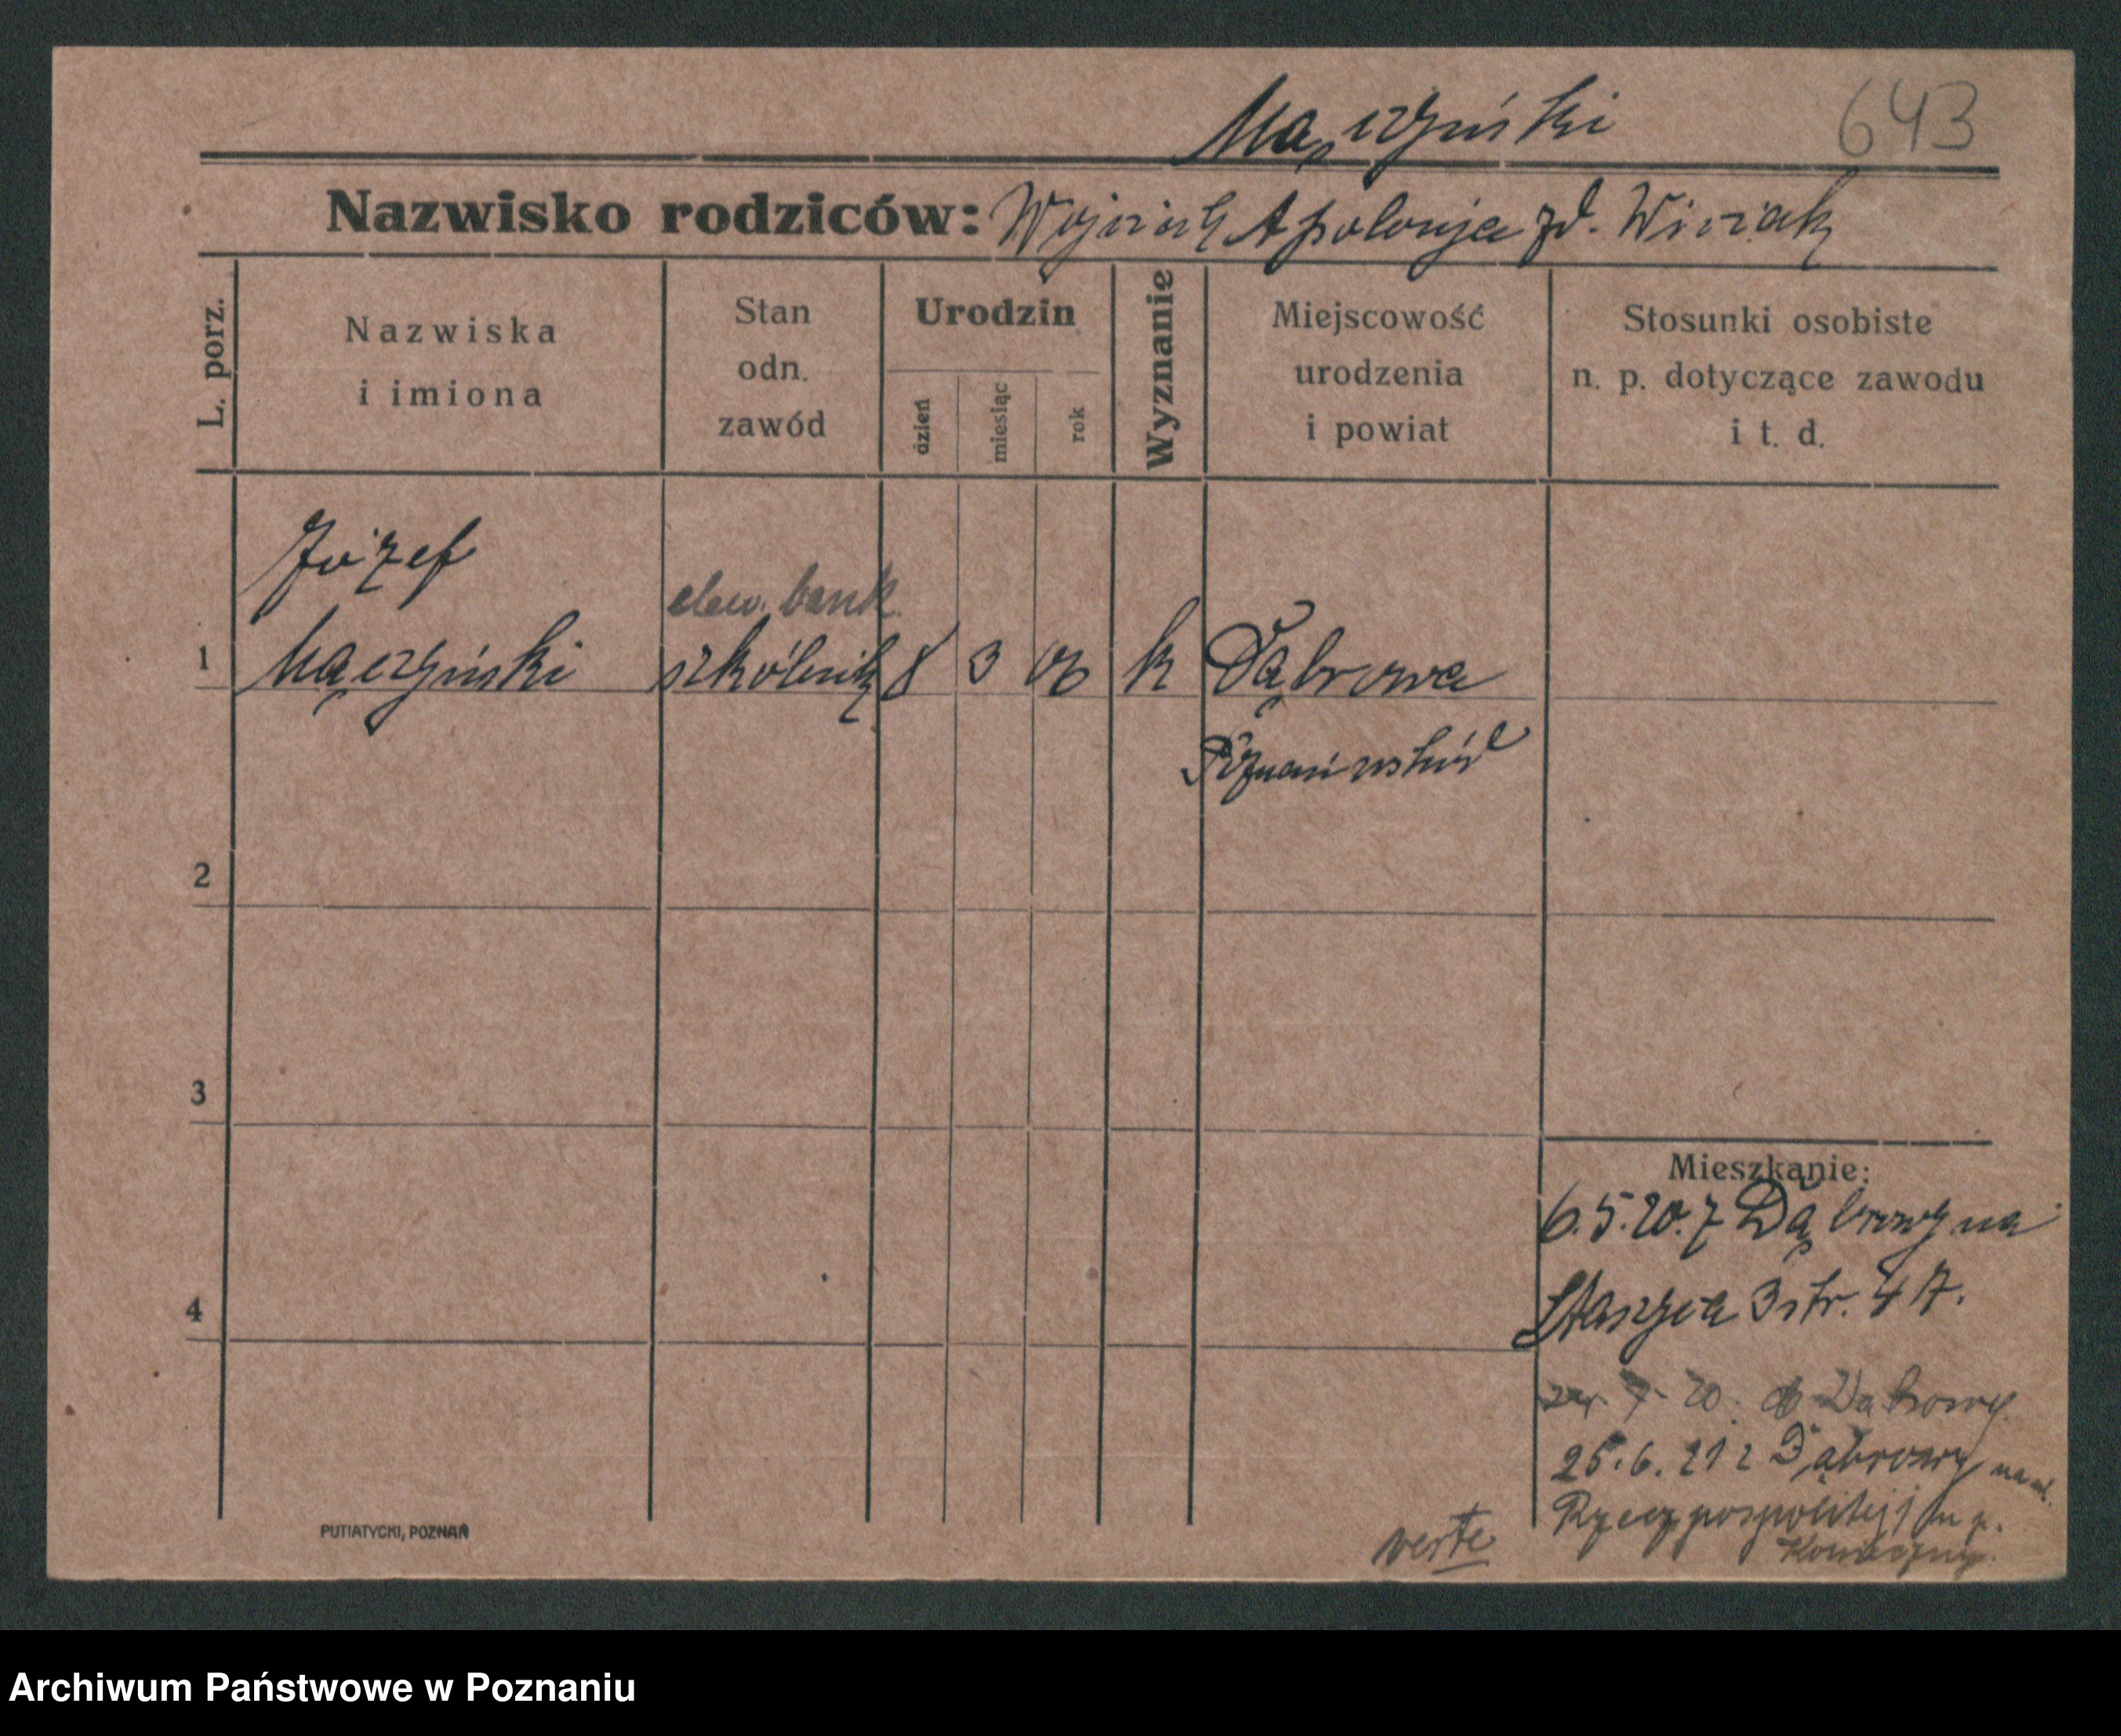 Mączyński 643
Nazwisko rodziców: Wojciech Apolonja zd. Wiciak
L. porz.
Nazwiska
i imiona
Stan
odn.
zawód
Urodzin
dzień
miesiąc
rok
Wyznanie
Miejscowość
urodzenia
i powiat
Stosunki osobiste
n. p. dotyczące zawodu
i t. d.
Józef
elew. bank.
1 Mączyński szkólnik 8 3 06 k Dąbrowa
Poznań wschód
2
3
Mieszkanie:
6.5.20. z Dąbrowy na
4
Staszyca 3 str. 4 A.
7. 20. do Dąbrowy.
25.6.21 z Dąbrowy na ul.
Rzeczypospolitej 1
verte
PUTIATYCKI, POZNAŃ
Archiwum Państwowe w Poznaniu